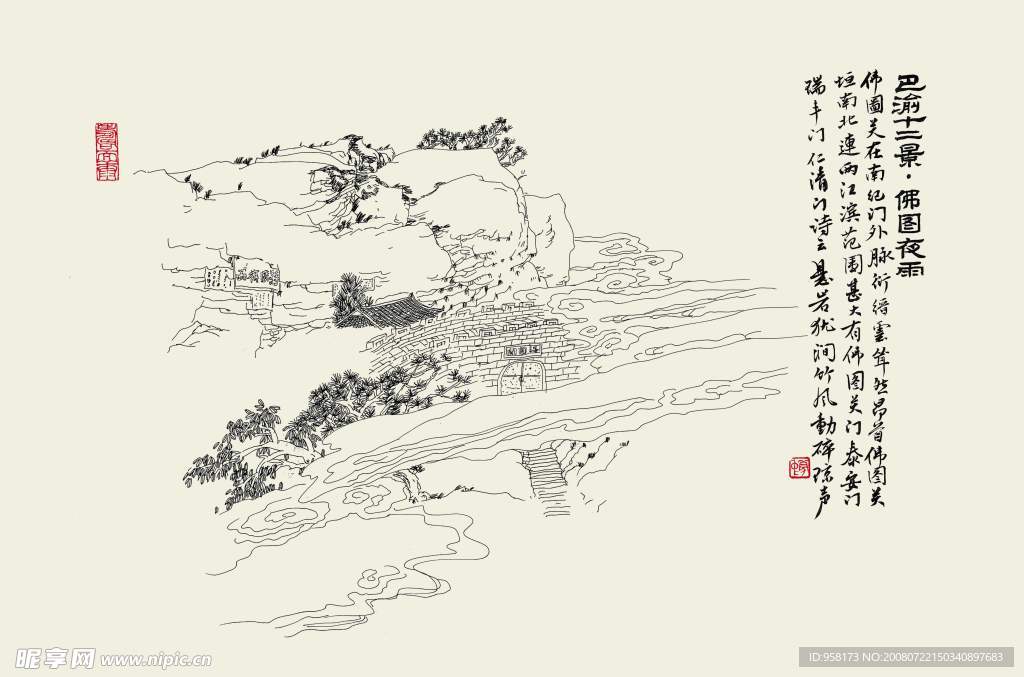 巴渝十二景·佛图夜雨
佛图关在南纪门外脉衍缙云耸然昂首佛图关
垣南北連两江滨范围甚大有佛图关门泰安门
瑞丰门仁清门诗云悬岩犹涧竹风動碎琼声
昵享网 www.nipic.cn
ID:958173 NO:20080722150340897683